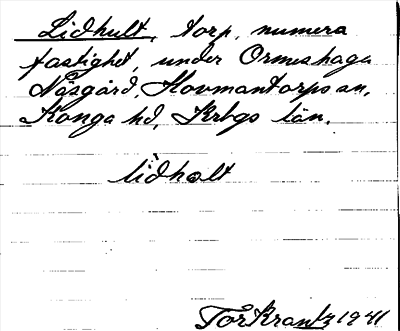 Lidhult, torp, numera
fastighet, under Ormeshaga
Näsgård, Hovmantorps sn,
Konga hd, Krbgs län.
lìdhalt
Tor Krantz 1941